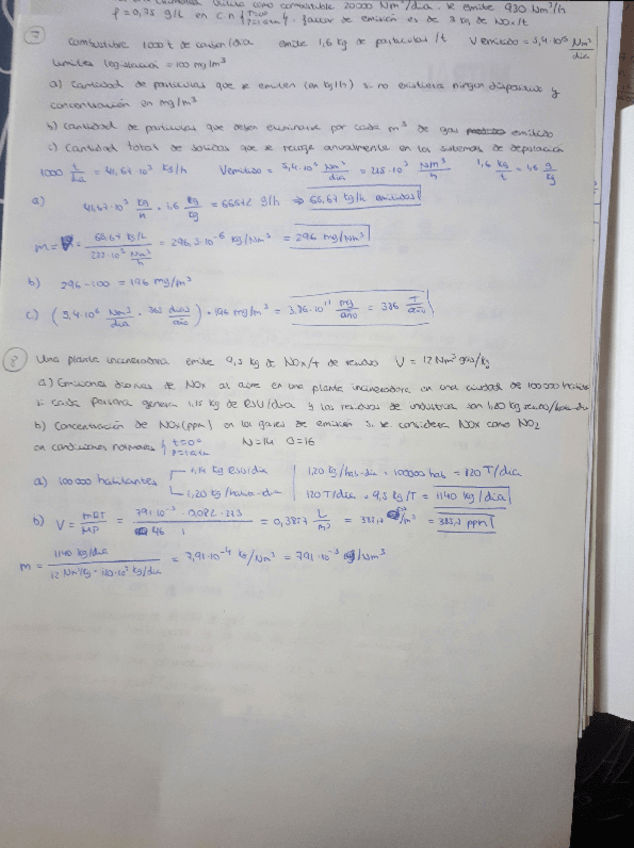 como combustible 20000 Nm³/dia. se emite 930 Nm³/h
ρ = 0,75 g/l en c.n factor de emisión es de 3 kg de NOx/t
7 Combustible 1000 t de carbon/dia emite 1,6 kg de particulas/t V emitido = 5,4·10⁶ Nm³/dia
limites legislación = 100 mg/m³
a) Cantidad de particulas que se emiten (en kg/h) si no existiera ningun dispositivo y
concentración en mg/m³
b) cantidad de particulas que deben eliminarse por cada m³ de gas emitido
c) Cantidad total de solidos que se recoge anualmente en los sistemas de depuración
1000 t/dia = 41,67·10³ kg/h V emitido = 5,4·10⁶ Nm³/dia = 225·10³ Nm³/h 1,6 kg/t = 1,6 g/kg
a) 41,67·10³ kg/h · 1,6 g/kg = 66672 g/h ⇒ 66,67 kg/h emitidas
m = 66,67 kg/h / 225·10³ Nm³/h = 296,3·10⁻⁶ kg/Nm³ = 296 mg/Nm³
b) 296-100 = 196 mg/m³
c) (5,4·10⁶ Nm³/dia · 365 dias/año) · 196 mg/m³ = 3,86·10¹¹ mg/año = 386 T/año
8 Una planta incineradora emite 9,5 kg de NOx/T de residuo V = 12 Nm³ gas/kg
a) Emisiones diarias de NOx al aire en una planta incineradora en una ciudad de 100000 habits
si cada persona genera 1,15 kg de RSU/dia y los residuos de industria son 1,20 kg
b) Concentración de NOx (ppm) en los gases de emisión si se considera NOx como NO₂
en condiciones normales t=0° P=1atm N=14 O=16
a) 100000 habitantes 1,15 kg RSU/dia 1,20 kg/hab·dia · 100000 hab = 120 T/dia
1,20 kg/hab·dia 120 T/dia · 9,5 kg/T = 1140 kg/dia
b) V = mRT/MP = 791·10⁻³ · 0,082 · 273 / 46 · 1 = 0,3857 L/m³ = 385,7 /m³ = 385,7 ppm
m = 1140 kg/dia / 12 Nm³/kg · 120·10³ kg/dia = 7,91·10⁻⁴ kg/Nm³ = 791·10⁻³ g/Nm³